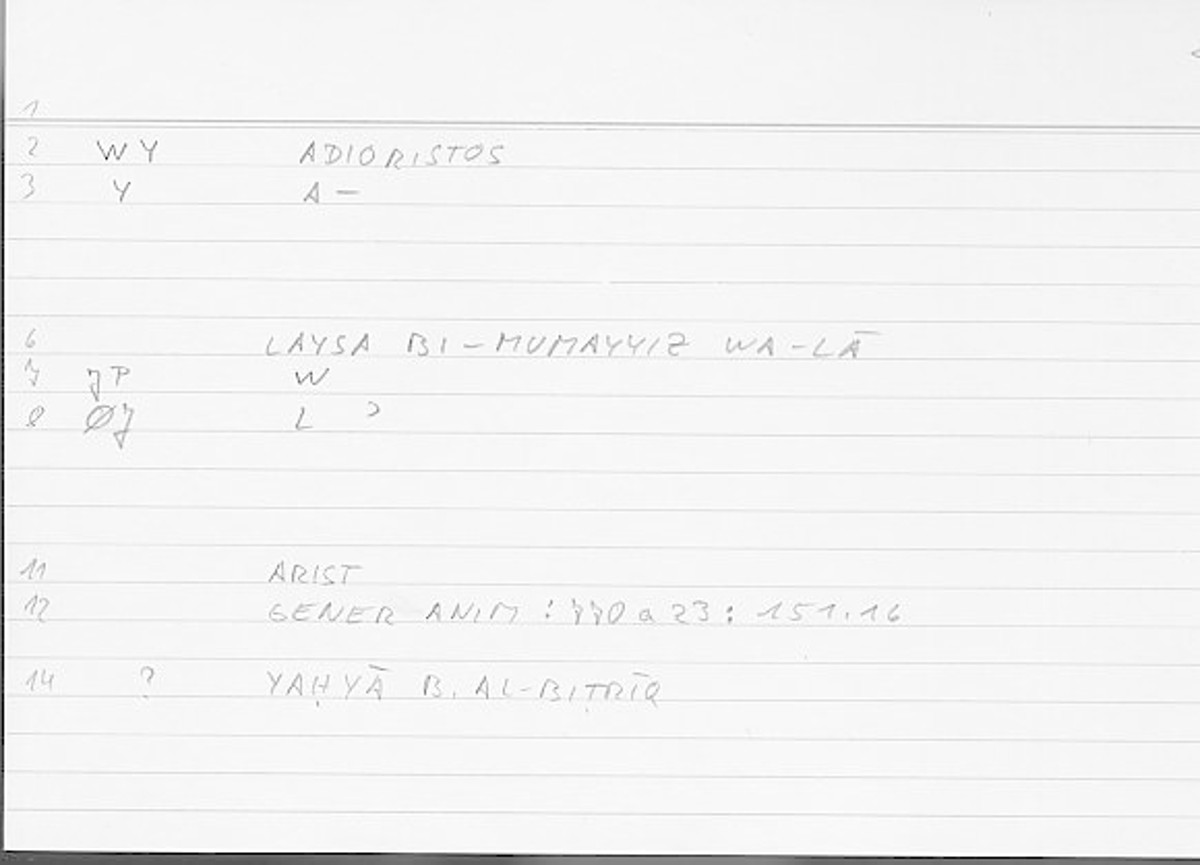 1
2 WY ADIORISTOS
3 Y A —
6 LAYSA BI-MUMAYYIZ WA-LĀ
7 7P W
8 Ø7 L ʾ
11 ARIST
12 GENER ANIM : 770 a 23 : 151.16
14 ? YAḤYĀ B. AL-BIṬRĪQ